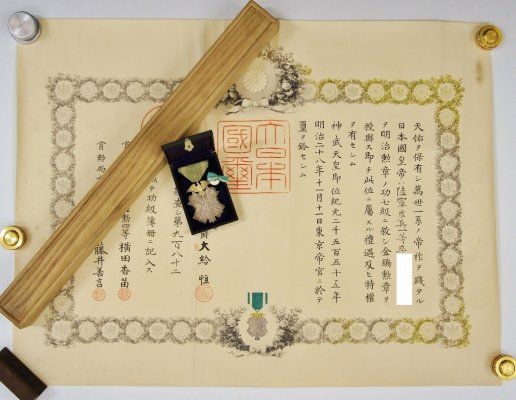 天佑ヲ保有シ萬世一系ノ帝祚ヲ踐タル
日本國皇帝ハ陸軍歩兵一等卒
ヲ明治勲章ノ功七級ニ敍シ金鵄勲章ヲ
授與ス即チ此位ニ屬スル禮遇及ヒ特權
ヲ有セシム
神武天皇即位紀元二千五百五十五年
明治二十八年十一月十一日東京帝宮ニ於テ
璽ヲ鈐セシム
大日本
國璽
大給恒
第九百八十二
テ功級簿冊ニ記入ス
勲四等横田香苗
賞勲局
藤井善言